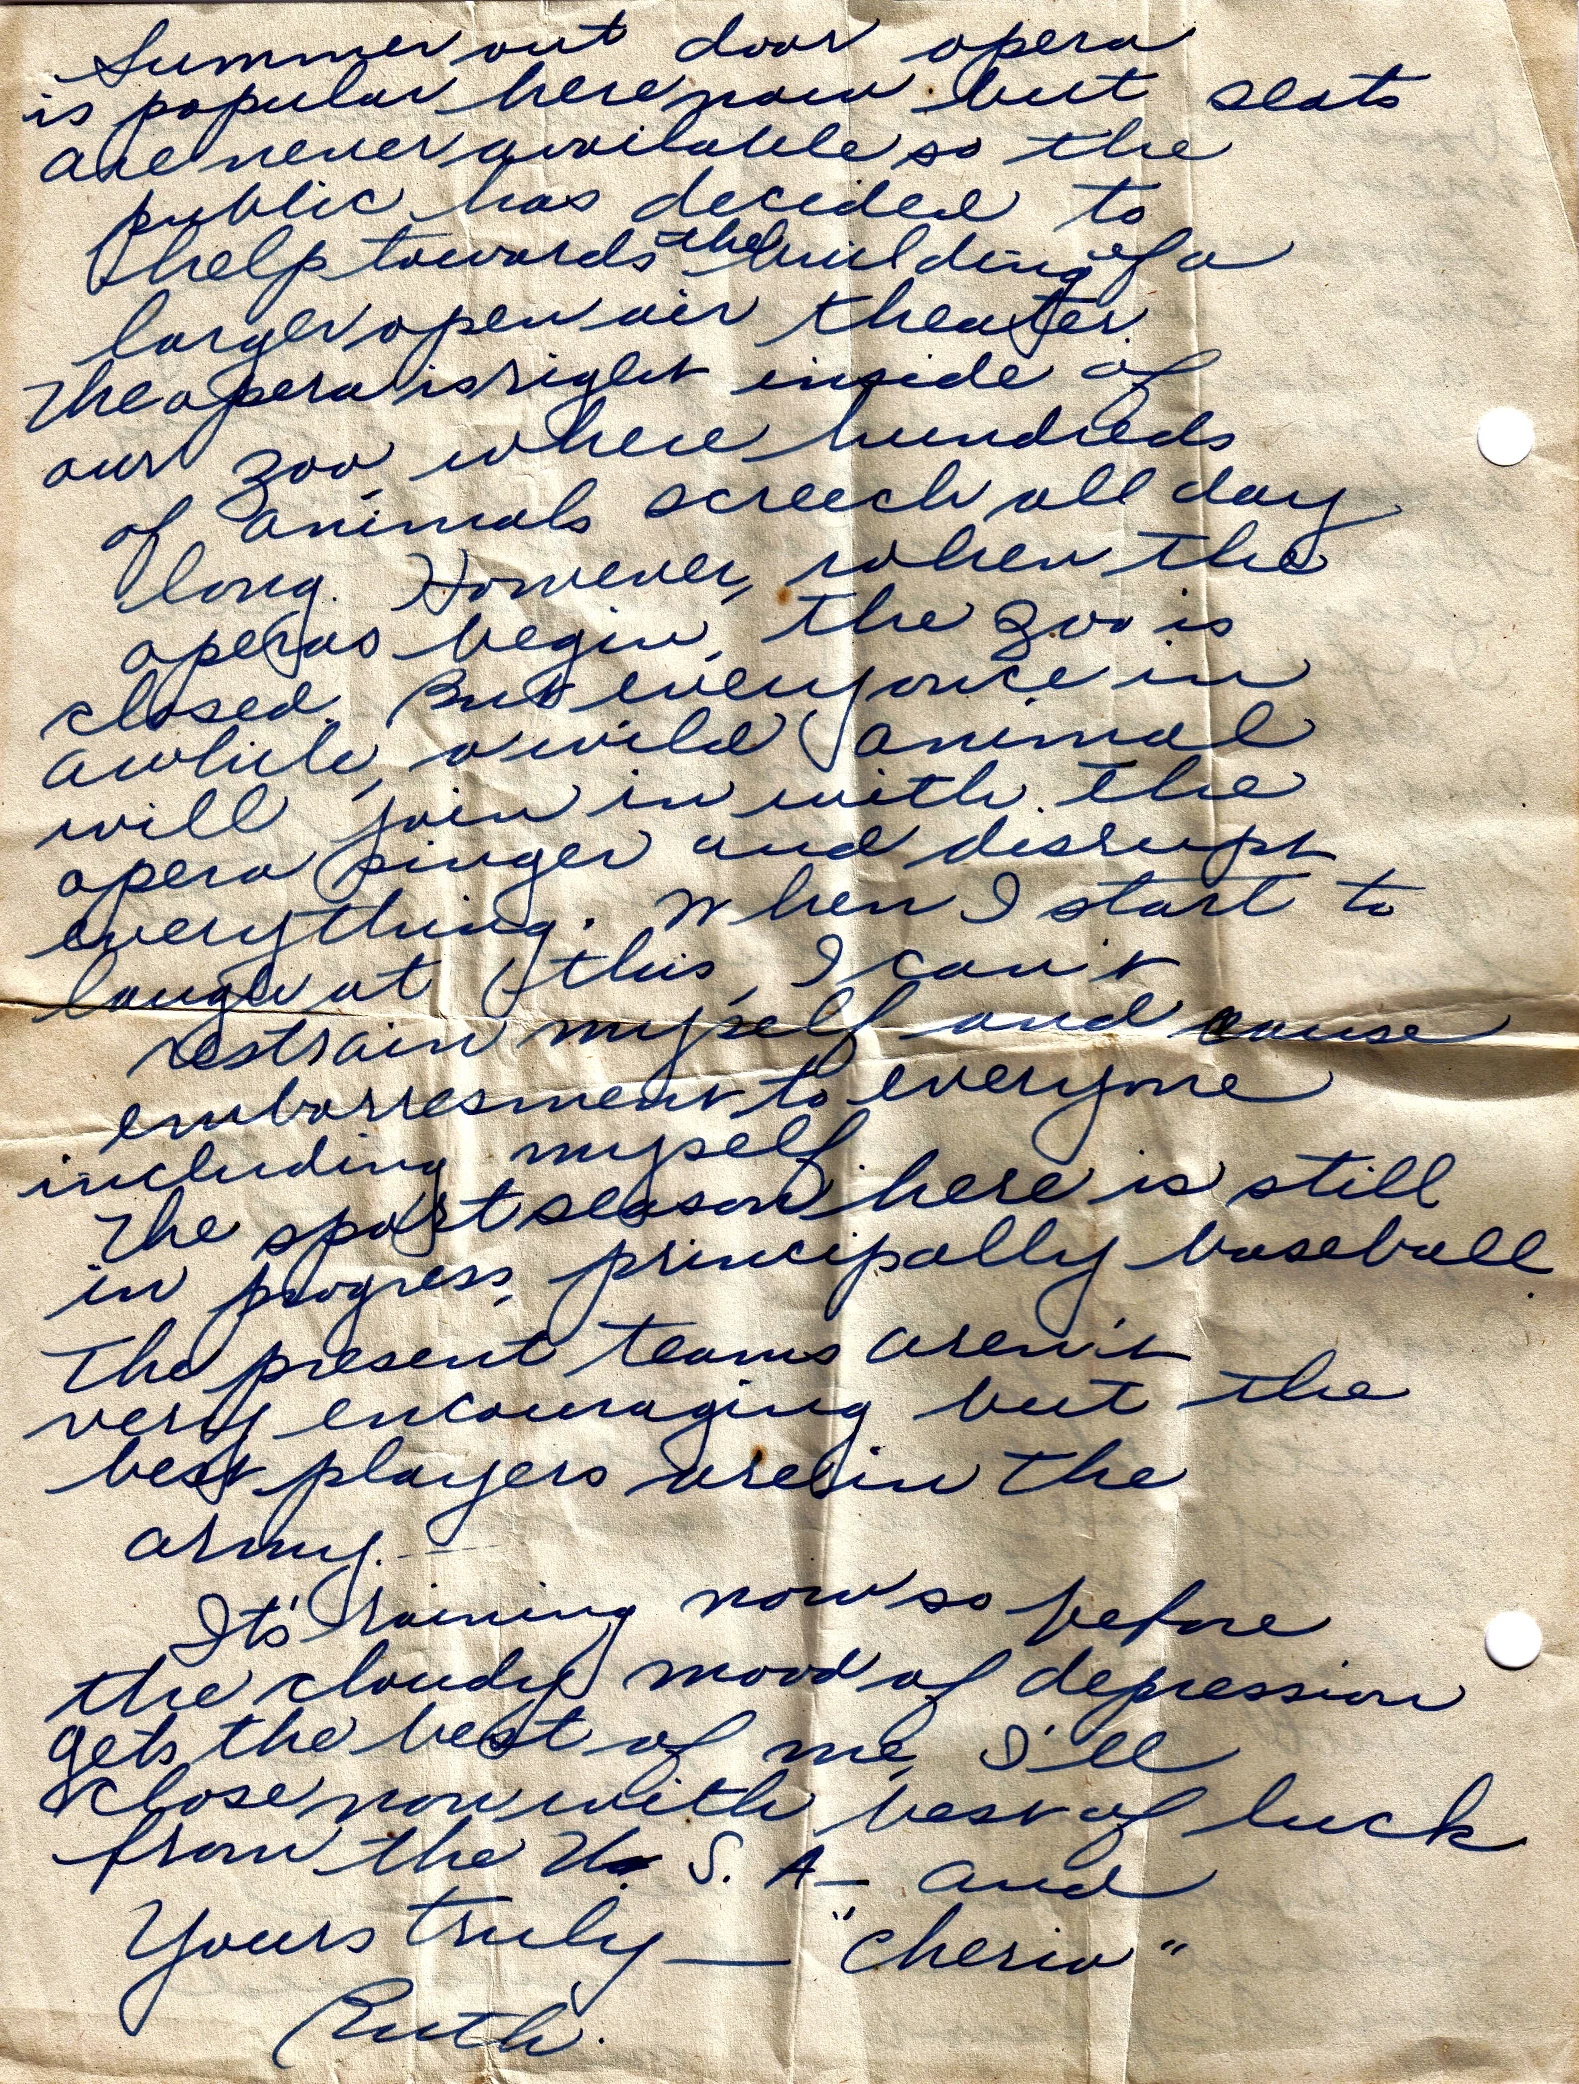 Summer out door opera
is popular here now but seats
are never available so the
public has decided to
help towards the building of a
larger open air theater.
The opera is right inside of
our zoo, where hundreds
of animals screech all day
long. However, when the
operas begin, the zoo is
closed. But every once in
awhile, a wild animal
will join in with the
opera singer and disrupt
everything. When I start to
laugh at this, I can't
restrain myself and cause
embarresment to everyone
including myself.
The sport season here is still
in progress, principally baseball.
The present teams aren't
very encouraging but the
best players are in the
army.
It's raining now so before
the cloudy mood of depression
gets the best of me, I'll
close now with best of luck
from the U. S. A- and
Yours truly — "Cherio"
Ruth.